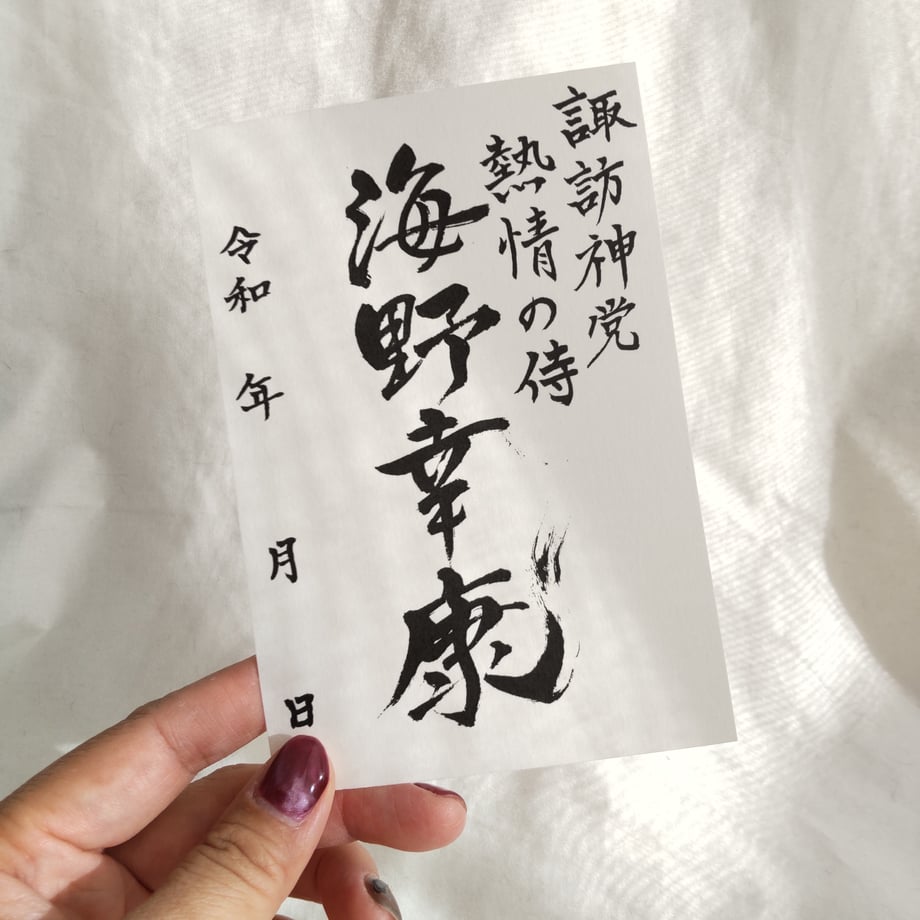 諏訪神党
熱情の侍
海野幸康
令和 年 月 日